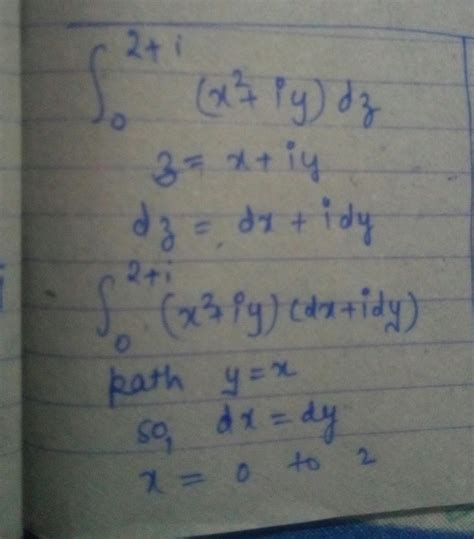 ∫₀²⁺ⁱ (x²+iy) dz
z = x+iy
dz = dx + idy
∫₀²⁺ⁱ (x²+iy) (dx+idy)
path y=x
so, dx = dy
x = 0 to 2